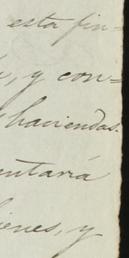 esta fin=
y con=
haciendas.
entaria
ienes, y